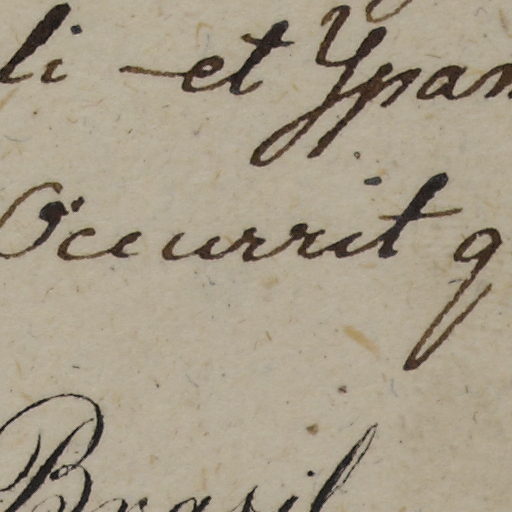 li - et Ypan
Occurrit q
Brasil